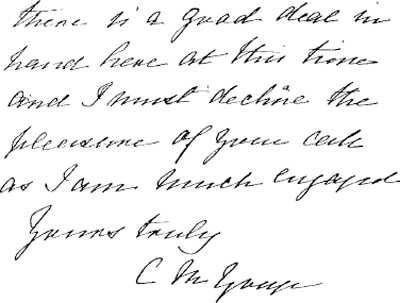 there is a good deal in
hand here at this time
and I must decline the
pleasure of your call
as I am much engaged
Yours truly
C M Yonge